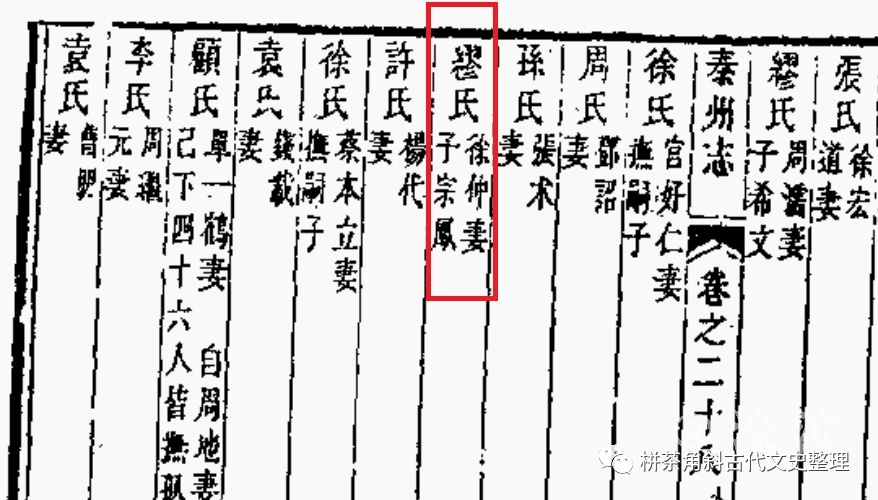 張氏 徐宏道妻
繆氏 周濡妻 子希文
泰州志 卷之二十
徐氏 宫好仁妻 撫嗣子
周氏 鄧詔妻
孫氏 張术妻
繆氏 徐仲妻 子宗鳳
許氏 楊代妻
徐氏 蔡本立妻 撫嗣子
袁氏 錢載妻
顧氏 單一鶴妻 自周地妻
己下四十六人皆撫孤
李氏 周繼元妻
袁氏 曹妻
栟茶角斜古代文史整理